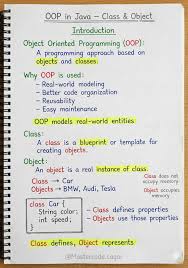 OOP in Java – Class & Object
Introduction
Object Oriented Programming (OOP):
A programming approach based on
objects and classes.
Why OOP is used:
- Real-world modeling
- Better code organization
- Reusability
- Easy maintenance
OOP models real-world entities
Class:
A class is a blueprint or template for
creating objects.
Object:
An object is a real instance of class.
Class → Car
Objects → BMW, Audi, Tesla
Class does not
occupy memory
Object occupies
memory
class Car {
String color;
int speed;
}
- Class defines properties
- Objects use those properties
Class defines, Object represents